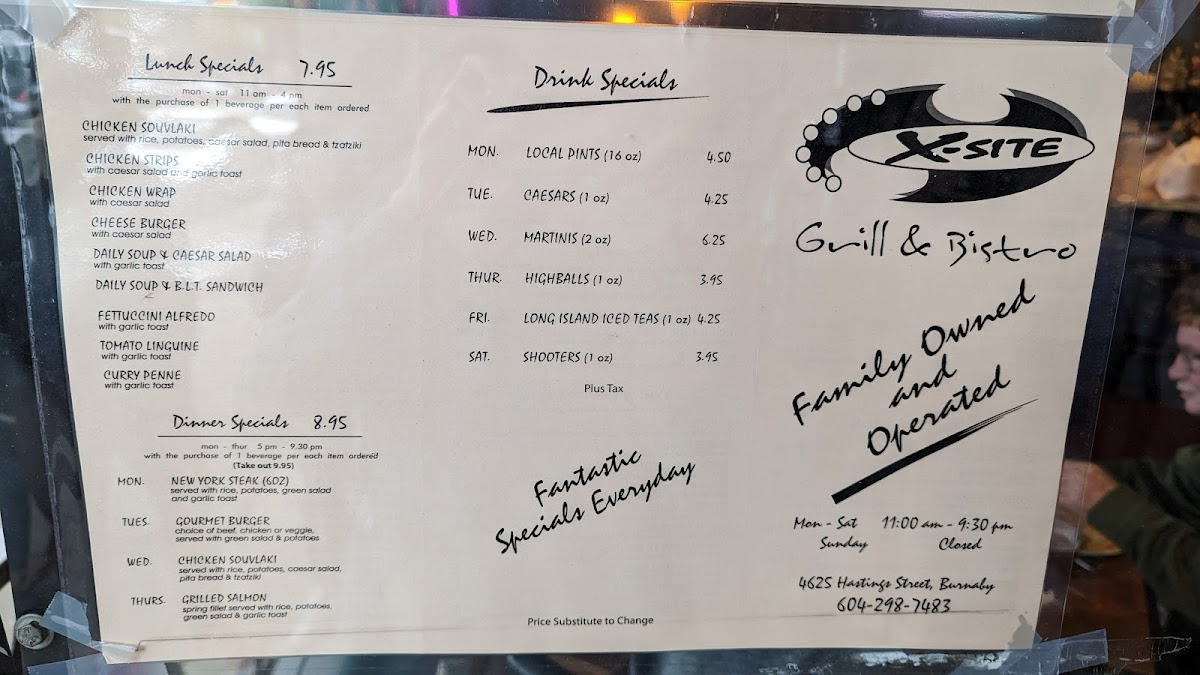 Lunch Specials 7.95
mon - sat 11 am - 4 pm
with the purchase of 1 beverage per each item ordered
CHICKEN SOUVLAKI
served with rice, potatoes, caesar salad, pita bread & tzatziki
CHICKEN STRIPS
with caesar salad and garlic toast
CHICKEN WRAP
with caesar salad
CHEESE BURGER
with caesar salad
DAILY SOUP & CAESAR SALAD
with garlic toast
DAILY SOUP & B.L.T. SANDWICH
FETTUCCINI ALFREDO
with garlic toast
TOMATO LINGUINE
with garlic toast
CURRY PENNE
with garlic toast
Dinner Specials 8.95
mon - thur 5 pm - 9.30 pm
with the purchase of 1 beverage per each item ordered
(Take out 9.95)
MON. NEW YORK STEAK (6OZ)
served with rice, potatoes, green salad
and garlic toast
TUES. GOURMET BURGER
choice of beef, chicken or veggie,
served with green salad & potatoes
WED. CHICKEN SOUVLAKI
served with rice, potatoes, caesar salad,
pita bread & tzatziki
THURS. GRILLED SALMON
spring fillet served with rice, potatoes,
green salad & garlic toast
Drink Specials
MON. LOCAL PINTS (16 oz) 4.50
TUE. CAESARS (1 oz) 4.25
WED. MARTINIS (2 oz) 6.25
THUR. HIGHBALLS (1 oz) 3.95
FRI. LONG ISLAND ICED TEAS (1 oz) 4.25
SAT. SHOOTERS (1 oz) 3.95
Plus Tax
Fantastic
Specials Everyday
Price Substitute to Change
X-SITE
Grill & Bistro
Family Owned
and
Operated
Mon - Sat 11:00 am - 9:30 pm
Sunday Closed
4625 Hastings Street, Burnaby
604-298-7483